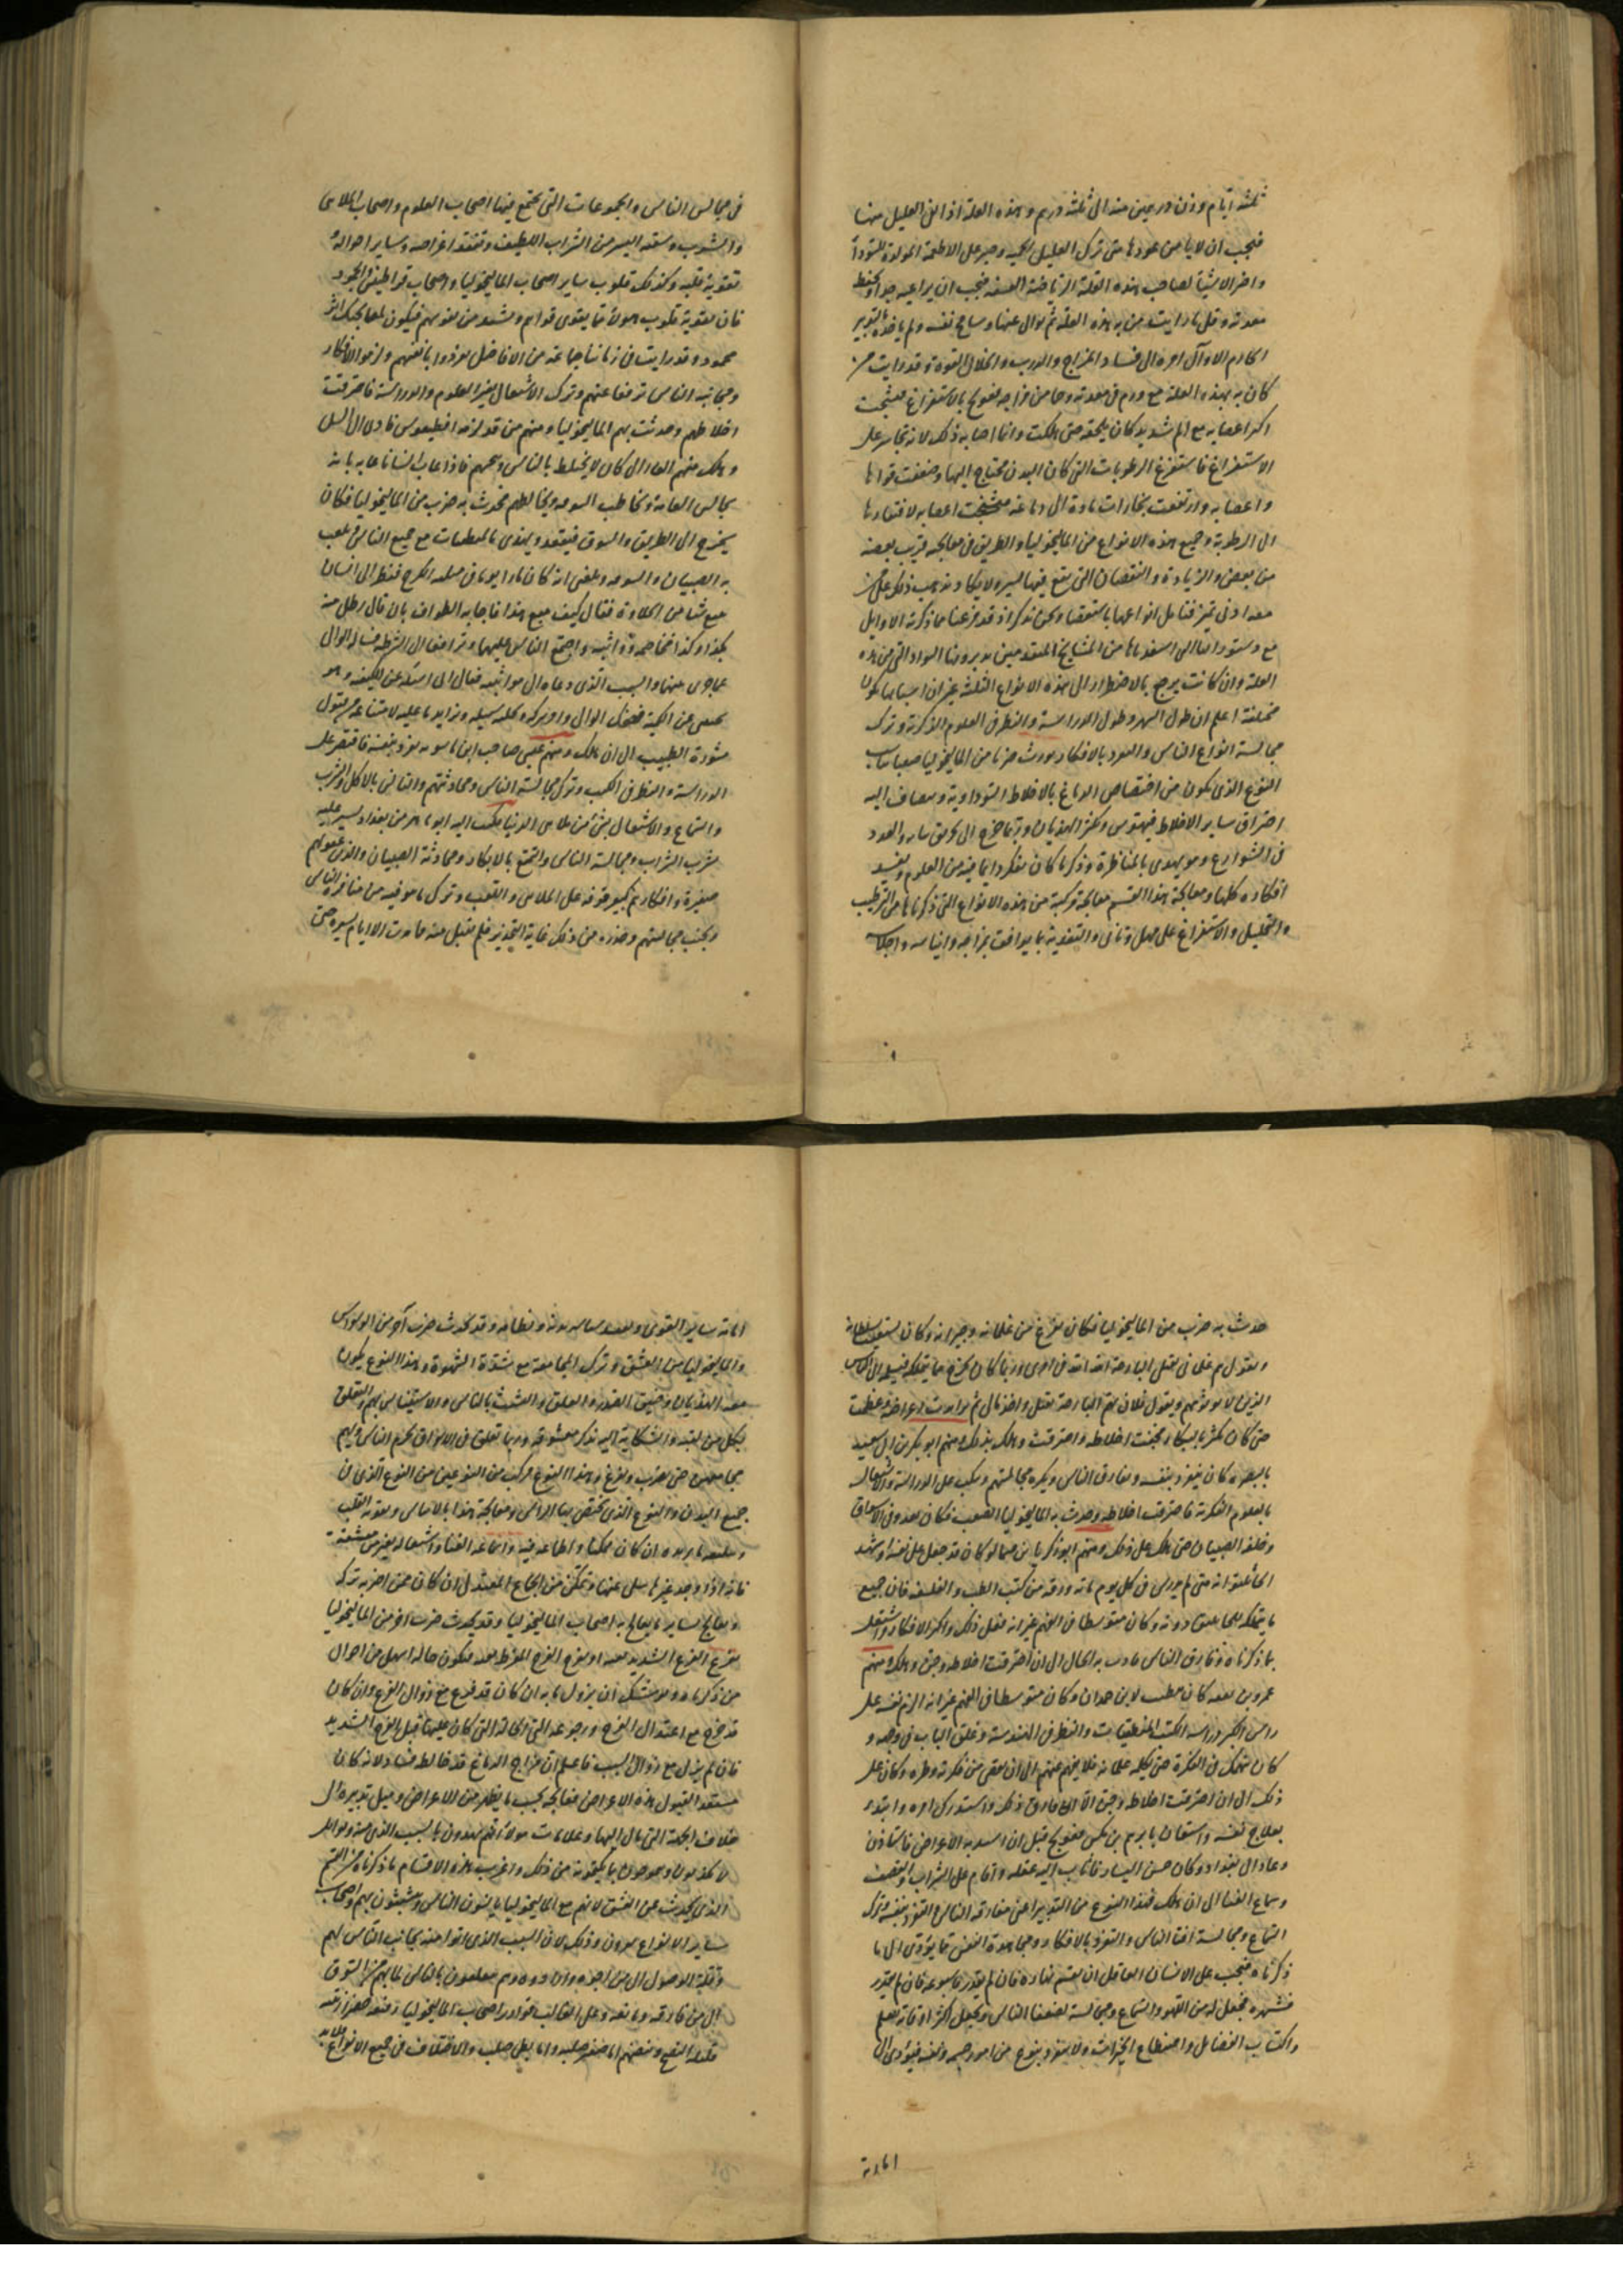 ثلثة ايام وزن درهمين منه الى ثلثة درهم وهذه العلة اذا افاق العليل منها
فيجب ان لا يامن عودها متى ترك العليل الحمية وجسر على الاطعمة المولدة للسوداء
واضر الاشياء لصاحب هذه العلة الرياضة العنيفة فيجب ان يراعيه جدا ويحفظ
معدته وقل ما رايت من به هذه العلة ثم توانى عنها وسامح نفسه ولم ياخذها بالتدبير
الا وآل امره الى فساد المزاج والذرب وانحلال القوة وقد رايت من
كان به هذه العلة مع ورم في معدته وحا من مزاجه فعولج بالاستفراغ فتشنجت
اكثر اعصابه مع الم شديد كان يلحقه حتى هلكت وانما اصابه ذلك لانه تجاسر على
الاستفراغ فاستفرغ الرطوبات التي كان البدن محتاج اليها وضعفت قواها
واعصابه وارتفعت بخارات حادة الى دماغه فتشنجت اعصابه لافتقارها
الى الرطوبة وجميع هذه الانواع من الماليخوليا والطريق في معالجته قريب بعضه
من بعض والزيادة والنقصان التي تقع فيها ليسير ولا يكاد يذهب ذلك على من
معه ادنى تميز فتامل انواعها باستقصاء ونحن نذكر اذ قد فرغنا مما ذكرته الاوايل
العلة وان كانت يرجع بالاضطرار الى هذه الانواع الثلثة غير ان اسبابها تكون
مختلفة اعلم ان طول السهر وطول الدراسة والنظر في العلوم الفكرية وترك
مجالسة انواع الناس والتفرد بالافكار يورث ضربا من الماليخوليا صعبا
النوع الذي يكون من اختصاص الدماغ بالاخلاط السوداوية ويضاف اليه
احتراق ساير الاخلاط فيهوس ويكثر الهذيان وربما خرج الى تخريق ثيابه والعدو
في الشوارع وهو يهذي بالمناظرة وذكر ما كان يفكر دايما فيه من العلوم ويفسد
افكاره كلها ومعالجة هذا القسم معالجة مركبة من هذه الانواع التي ذكرناها من الترطيب
والتحليل والاستفراغ على مهل وتاني والتغذية بما يوافق مزاجه وايناسه واجلاسه
في مجالس الناس والمجموعات التي تجتمع فيها اصحاب العلوم واصحاب الملاهي
والشرب وسقيه اليسير من الشراب اللطيف وتفقد اغراضه وساير احواله و
تقوية قلبه وكذلك قلوب ساير اصحاب الماليخوليا واصحاب قراطيفى والجمود
فان تقوية قلوب هولاء مما يقوي قواهم ويشد من نفوسهم فيكون لمعالجتك اثر
محمود وقد رايت في زماننا جماعة من الافاضل تفردوا بانفسهم ولزموا الافكار
ومجانبة الناس ترفعا عنهم وترك الاشتغال بغير العلوم والدراسة فاحترقت
اخلاطهم وحدثت بهم الماليخوليا ومنهم من قد لزمه اقطيقوس فادى الى السل
وهلك منهم الفارابي كان لا يختلط بالناس ويجمهم فاذا عاب انسانا عابه بانه
يجالس العامة ويخاطب السوقة ويخالطهم فحدث به ضرب من الماليخوليا فكان
يخرج الى الطريق والسوق فيقعد ويهذي بالمنطقيات مع جميع الناس فيلعب
به الصبيان والسوقة وبلغني انه كان مارا يوما في محلة الكرخ فنظر الى انسان
يبيع شيا من الحلاوة فقال كيف تبيع هذا فاجابه الطواف بان قال رطل منه
بكذا وكذا فخاصمه وواثبه واجتمع الناس عليهما وترافعا الى الشرطة فسال الوالي
عما جرى بينهما والسبب الذي دعاه الى مواثبته فقال اني اسئله عن الكيفية وهو
يجيبني عن الكمية فضحك الوالي وامر بتركه وتخلية سبيله وتزايد ما عليه لامتناعه من قبول
مشورة الطبيب الى ان هلك ومنهم عيسى صاحب ابن ماسويه تفرد بنفسه فاقتصر على
الدراسة والنظر في الكتب وترك مجالسة الناس ومحادثتهم والتانس بالاكل والشرب
والسماع والاشتغال بشي من ملاهي الدنيا فكتب اليه ابو ماهر من بغداد يشير عليه
بشرب الشراب ومجالسة الناس والتمتع بالابكار ومحادثة الصبيان والذين عقولهم
صغيرة وافكارهم يسيرة وتوفر على الملاهي واللعب وترك ما هو فيه من منافرة الناس
وتجنب مجالستهم وحذره من ذلك غاية التحذير فلم يقبل منه فما مرت الا ايام يسيرة حتى
حدث به ضرب من الماليخوليا فكان يفزع من غلمانه وجيرانه وكان
ويقول هم غلماني بقتلي البارحة الله الله في امري وربما كان يخرج ما يملكه فيسلمه الى الناس
الذين لا يوثق بهم ويقول فلان هم البارحة بقتلي واخذ مالي ثم ترادت اعراضه وعظمت
حتى كان يكثر بالبكاء فجفت اخلاطه واحترقت وهلك بذلك ومنهم ابو بكر بن ابي سعيد
بالبصرة كان يتفرد بنفسه ويفارق الناس ويكره مجالستهم ويكب على الدراسة والاشتغال
بالعلوم الفكرية فاحترقت اخلاطه وحدث به الماليخوليا الصعب فكان يعدو في الاسواق
وخلفه الصبيان حتى هلك على ذلك ومنهم ابو ذكريا بن كان قد جعل على نفسه
انه متى لم يدرس في كل يوم مائة ورقة من كتب الطب والفلسفة فان جميع
ما يملكه وكان متوسطا في الفهم غير انه فعل ذلك واكثر الافكار واشتغل
بما ذكرناه وفارق الناس به الحال الى ان احترقت اخلاطه وجن وهلك ومنهم
عمرو بن كان يطبب لابن حمدان وكان متوسطا في الفهم غير انه الزم نفسه على
راس الكبر دراسة الكتب المنطقيات والنظر في الهندسة وغلق الباب في وجهه و
كان ينهمك في الفكرة حتى يكلمه غلمانه فلا يفهم عنهم الى ان يقضي من فكرته وطره وكان على
ذلك الى ان احترقت اخلاطه وجن الا انه فارق ذكره واستدرك امره وابتدء
بعلاج نفسه واستعان بابرهيم بن بكس فعولج قبل ان به الاعراض فاستاذن
وعاد الى بغداد وكان حسن اليسار فاثاب اليه عقله واقام على الشراب والقصف
وسماع الغنا الى ان هلك فهذا النوع من التدبير اعني مفارقة الناس والتفرد بنفسه وترك
السماع ومجالسة افنا الناس والتفرد بالافكار ومجاهدة النفس مما يؤدي الى ما
ذكرناه فيجب على الانسان العاقل ان يقسم نهاره فان لم يقدر فاسبوعه فان لم يقدر
فشهره فيجعل له من اللهو والسماع ومجالسة الناس ويجعل اكثر اوقاته لتعلم
واكتساب الفضايل واصطناع الخيرات ولا يتفرد بنوع من امور جسمه ونفسه فيؤدي الى
اماتة
اماتة ساير القوى وقد يحدث ضرب آخر من الوسواس
والماليخوليا من العشق وترك المجامعة مع شدة الشهوة وهذا النوع يكون
معه الهذيان وضيق الصدر والقلق والتشبث بالناس والاستيناس بهم والتعلق
بكل من يلقيه والشكاية اليه بذكر معشوقه وربما تعلق في الاسواق بحرم الناس
حتى يضرب ويفزع وهذا النوع مركب من النوعين من النوع الذي في
جميع البدن والنوع الذي يختص بها الراس ومعالجة هذا بالايناس وتقوية القلب
ما يريده ان كان ممكنا واطماعه فيه واسماعه الغنا واشغاله بغير من يعشقه
فانه اذا وجد غيرها سلى عنها وتمكن من الجماع المعتدل ان كان ممن اضر به تركه
ويعالج بساير ما يعالج به اصحاب الماليخوليا وقد يحدث ضرب اخر من الماليخوليا
بفزع الفزع الشديد بعنه او يفرح الفرح المفرط بعنة فيكون حاله اسهل من احوال
من ذكرناه ولا يشك ان يزول ما به ان كان قد فزع مع زوال الفزع وان كان
قد فرح مع اعتدال الفرح ورجوعه الى الحالة التي كان عليها قبل الفرح الشديد
فان لم يزل مع زوال السبب فاعلم ان مزاج الدماغ قد خالطه فساد لانه كان
مستعد القبول هذه الاعراض فعالجه بحسب ما يظهر من الاعراض وميل تدبيره الى
خلاف الجهة التي مال اليها وعلامات هولاء انهم يهذون بالسبب الذي
من ذلك واغرب هذه الاقسام ما ذكرناه من القسم
الذي يحدث عن العشق لانهم مع الماليخوليا يانسون الناس ويتشبثون بهم واصحاب
ساير الانواع يفرون وذلك لان السبب الذي اتوا منه مجانبة الناس لهم
وقلة الوصول الى من احبوه وارادوه فهم يتعلقون بالناس لما بهم من الشوق
الى من فارقه وعلى الغالب فنوادر اصحاب الماليخوليا
قليلة النضج ونبضهم اما صغير صلب واما بطي صلب والاختلاف في جميع الانواع